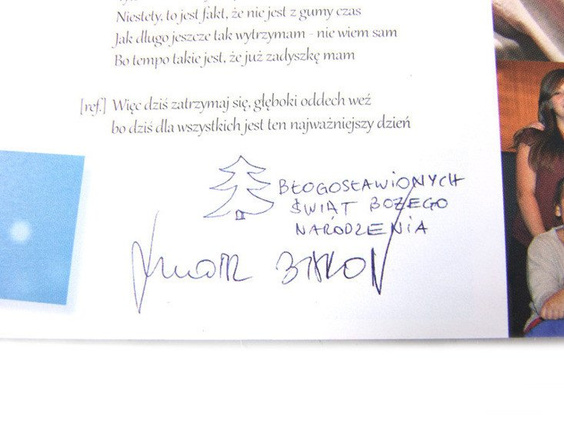 Niestety, to jest fakt, że nie jest z gumy czas
Jak długo jeszcze tak wytrzymam - nie wiem sam
Bo tempo takie jest, że już zadyszkę mam
[ref.] Więc dziś zatrzymaj się, głęboki oddech weź
bo dziś dla wszystkich jest ten najważniejszy dzień
BŁOGOSŁAWIONYCH
ŚWIĄT BOŻEGO
NARODZENIA